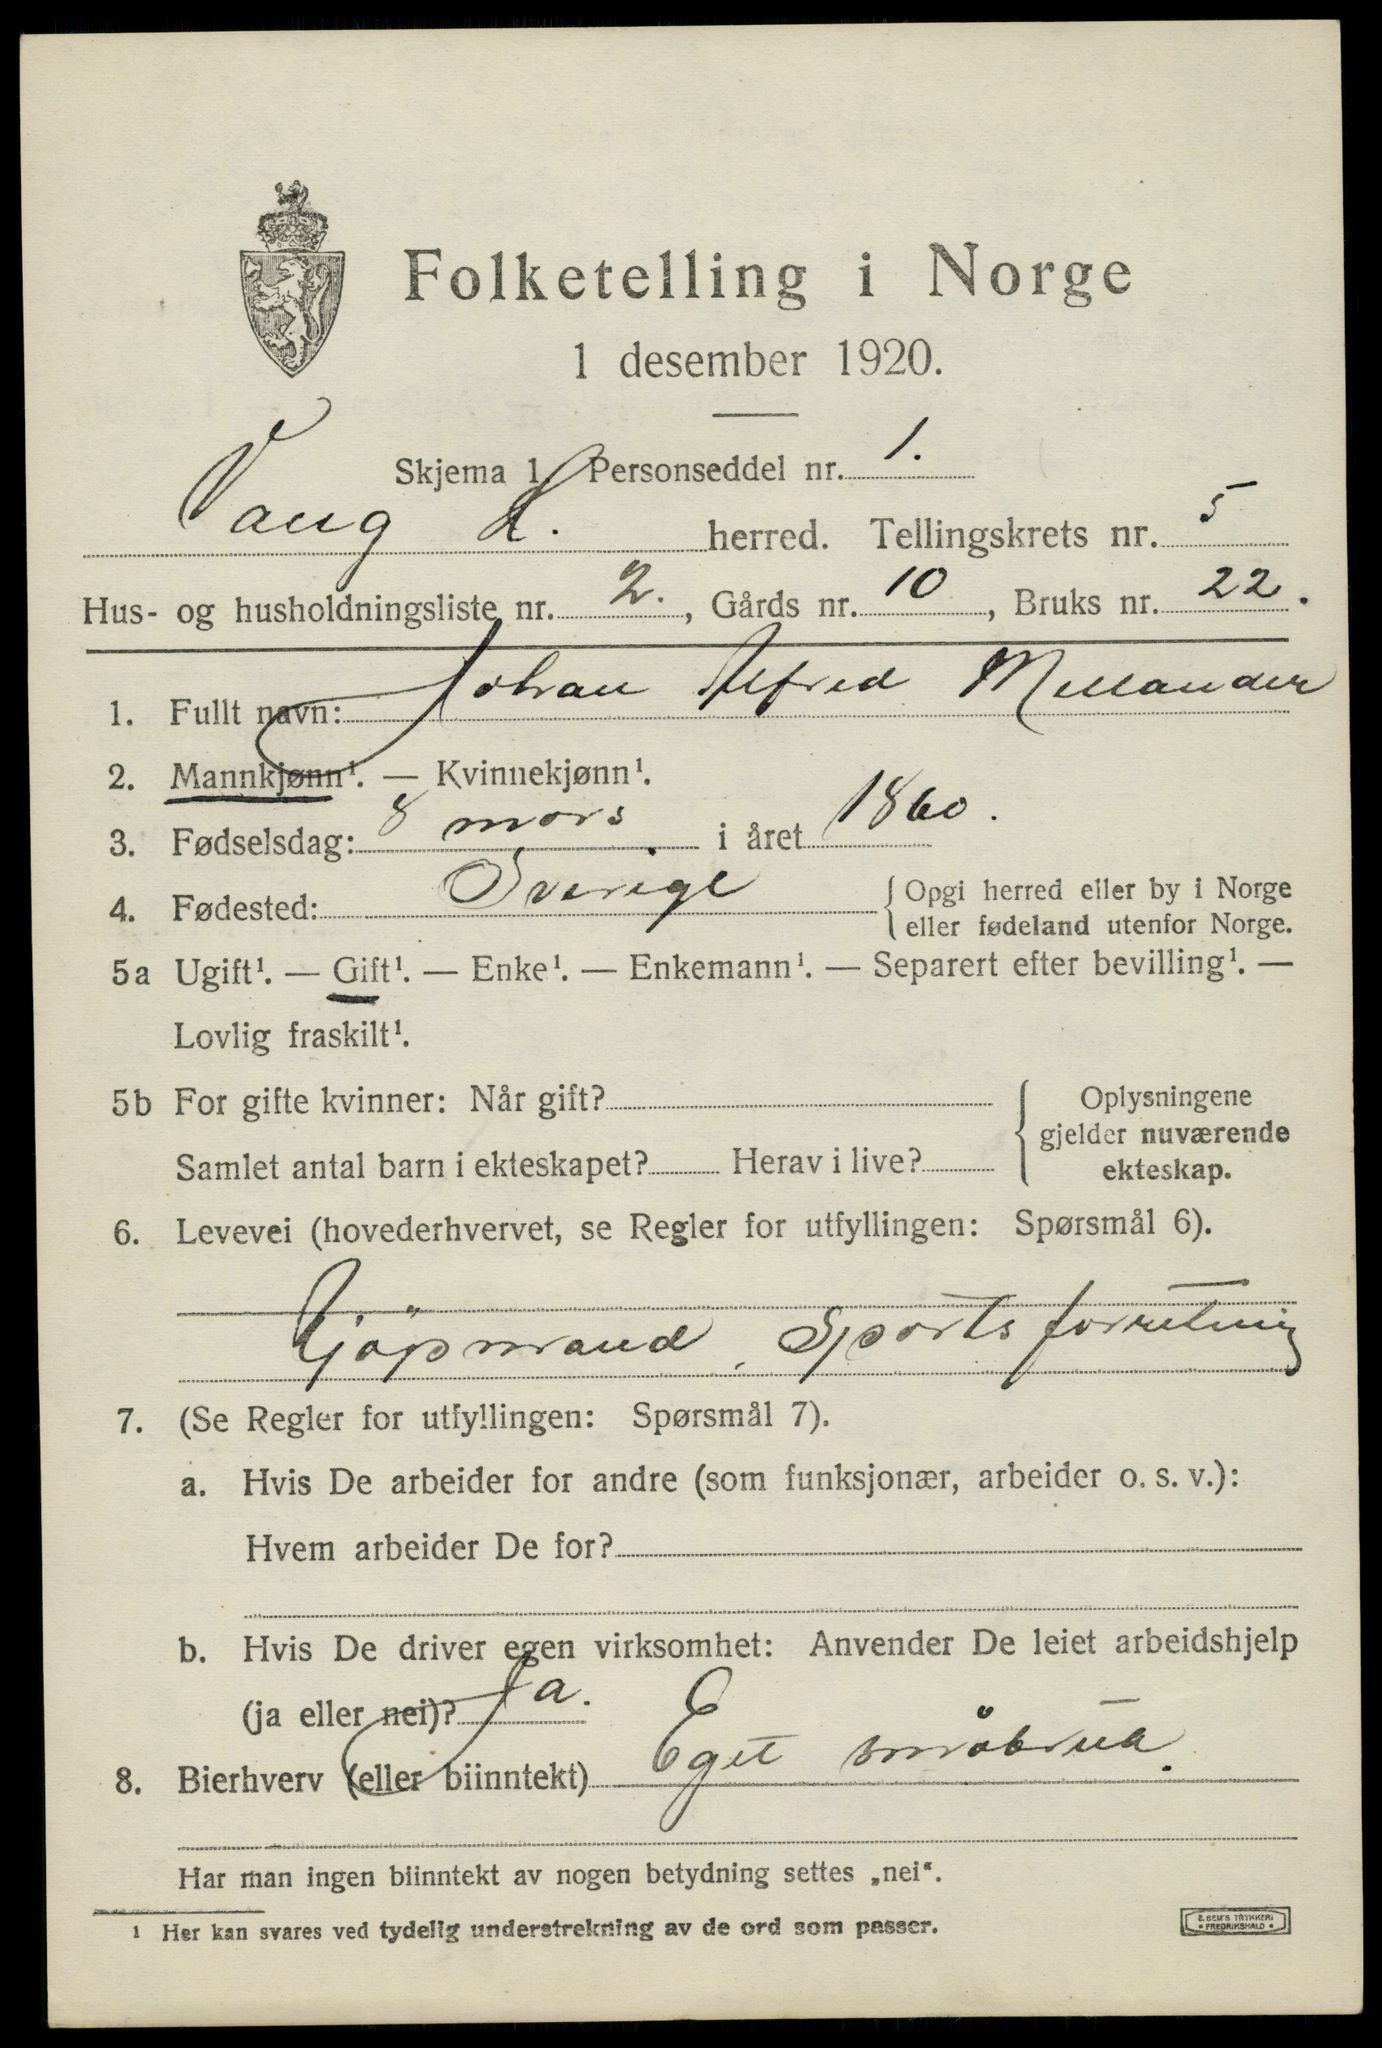 Folketelling i Norge
1 desember 1920.
Skjema 1 Personseddel nr. 1.
Vang H. herred. Tellingskrets nr. 5
Hus- og husholdningsliste nr. 2., Gårds nr. 10, Bruks nr. 22.
1. Fullt navn: Johan Alfred Mellander
2. Mannkjønn¹. — Kvinnekjønn¹.
3. Fødselsdag: 8 mars i året 1860.
4. Fødested: Sverige { Opgi herred eller by i Norge
eller fødeland utenfor Norge.
5a Ugift¹. — Gift¹. — Enke¹. — Enkemann¹. — Separert efter bevilling¹. —
Lovlig fraskilt¹.
5b For gifte kvinner: Når gift? { Oplysningene
gjelder nuværende
Samlet antal barn i ekteskapet? Herav i live? ekteskap.
6. Levevei (hovederhvervet, se Regler for utfyllingen: Spørsmål 6).
Kjöpmand, Sportsforretning
7. (Se Regler for utfyllingen: Spørsmål 7).
a. Hvis De arbeider for andre (som funksjonær, arbeider o. s. v.):
Hvem arbeider De for?
b. Hvis De driver egen virksomhet: Anvender De leiet arbeidshjelp
(ja eller nei)? Ja.
8. Bierhverv (eller biinntekt) Eget småbruk.
Har man ingen biinntekt av nogen betydning settes „nei“.
¹ Her kan svares ved tydelig understrekning av de ord som passer.
E. SEM'S TRYKKERI
• FREDRIKSHALD •